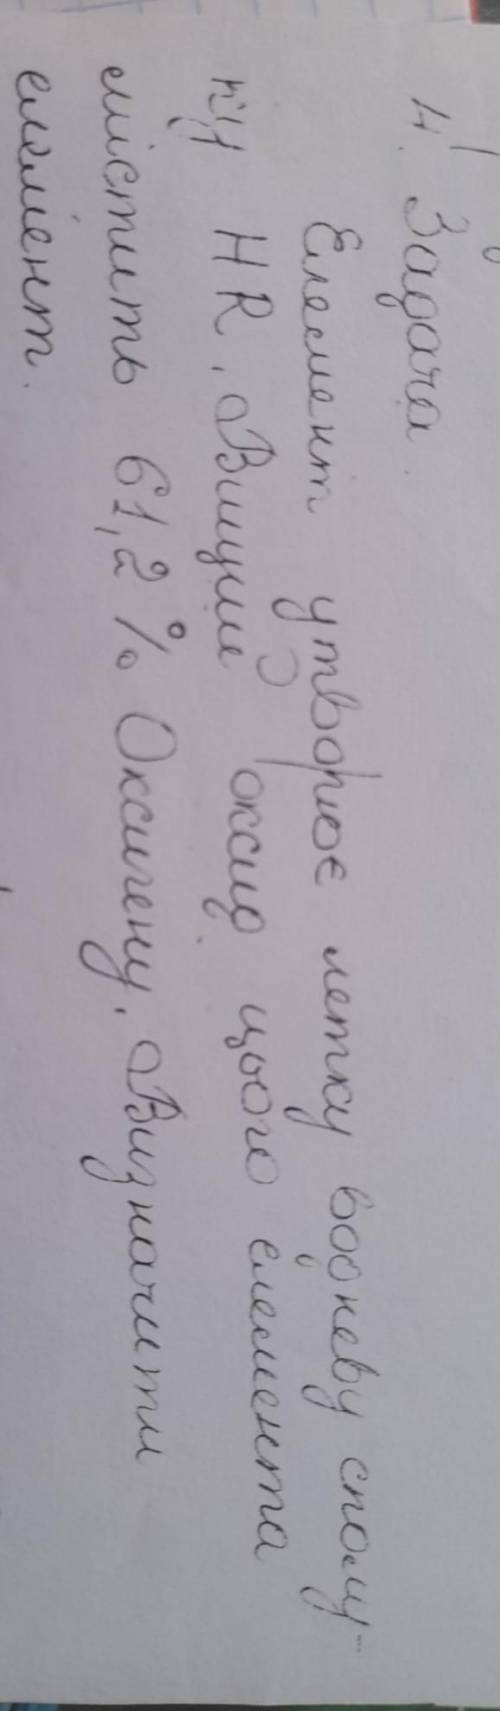 4. Задача.
Елемент утворює летку водневу сполу-
ку HR, Вищий оксид цього елемента
містить 61,2 % Оксигену, Визначити
елемент.